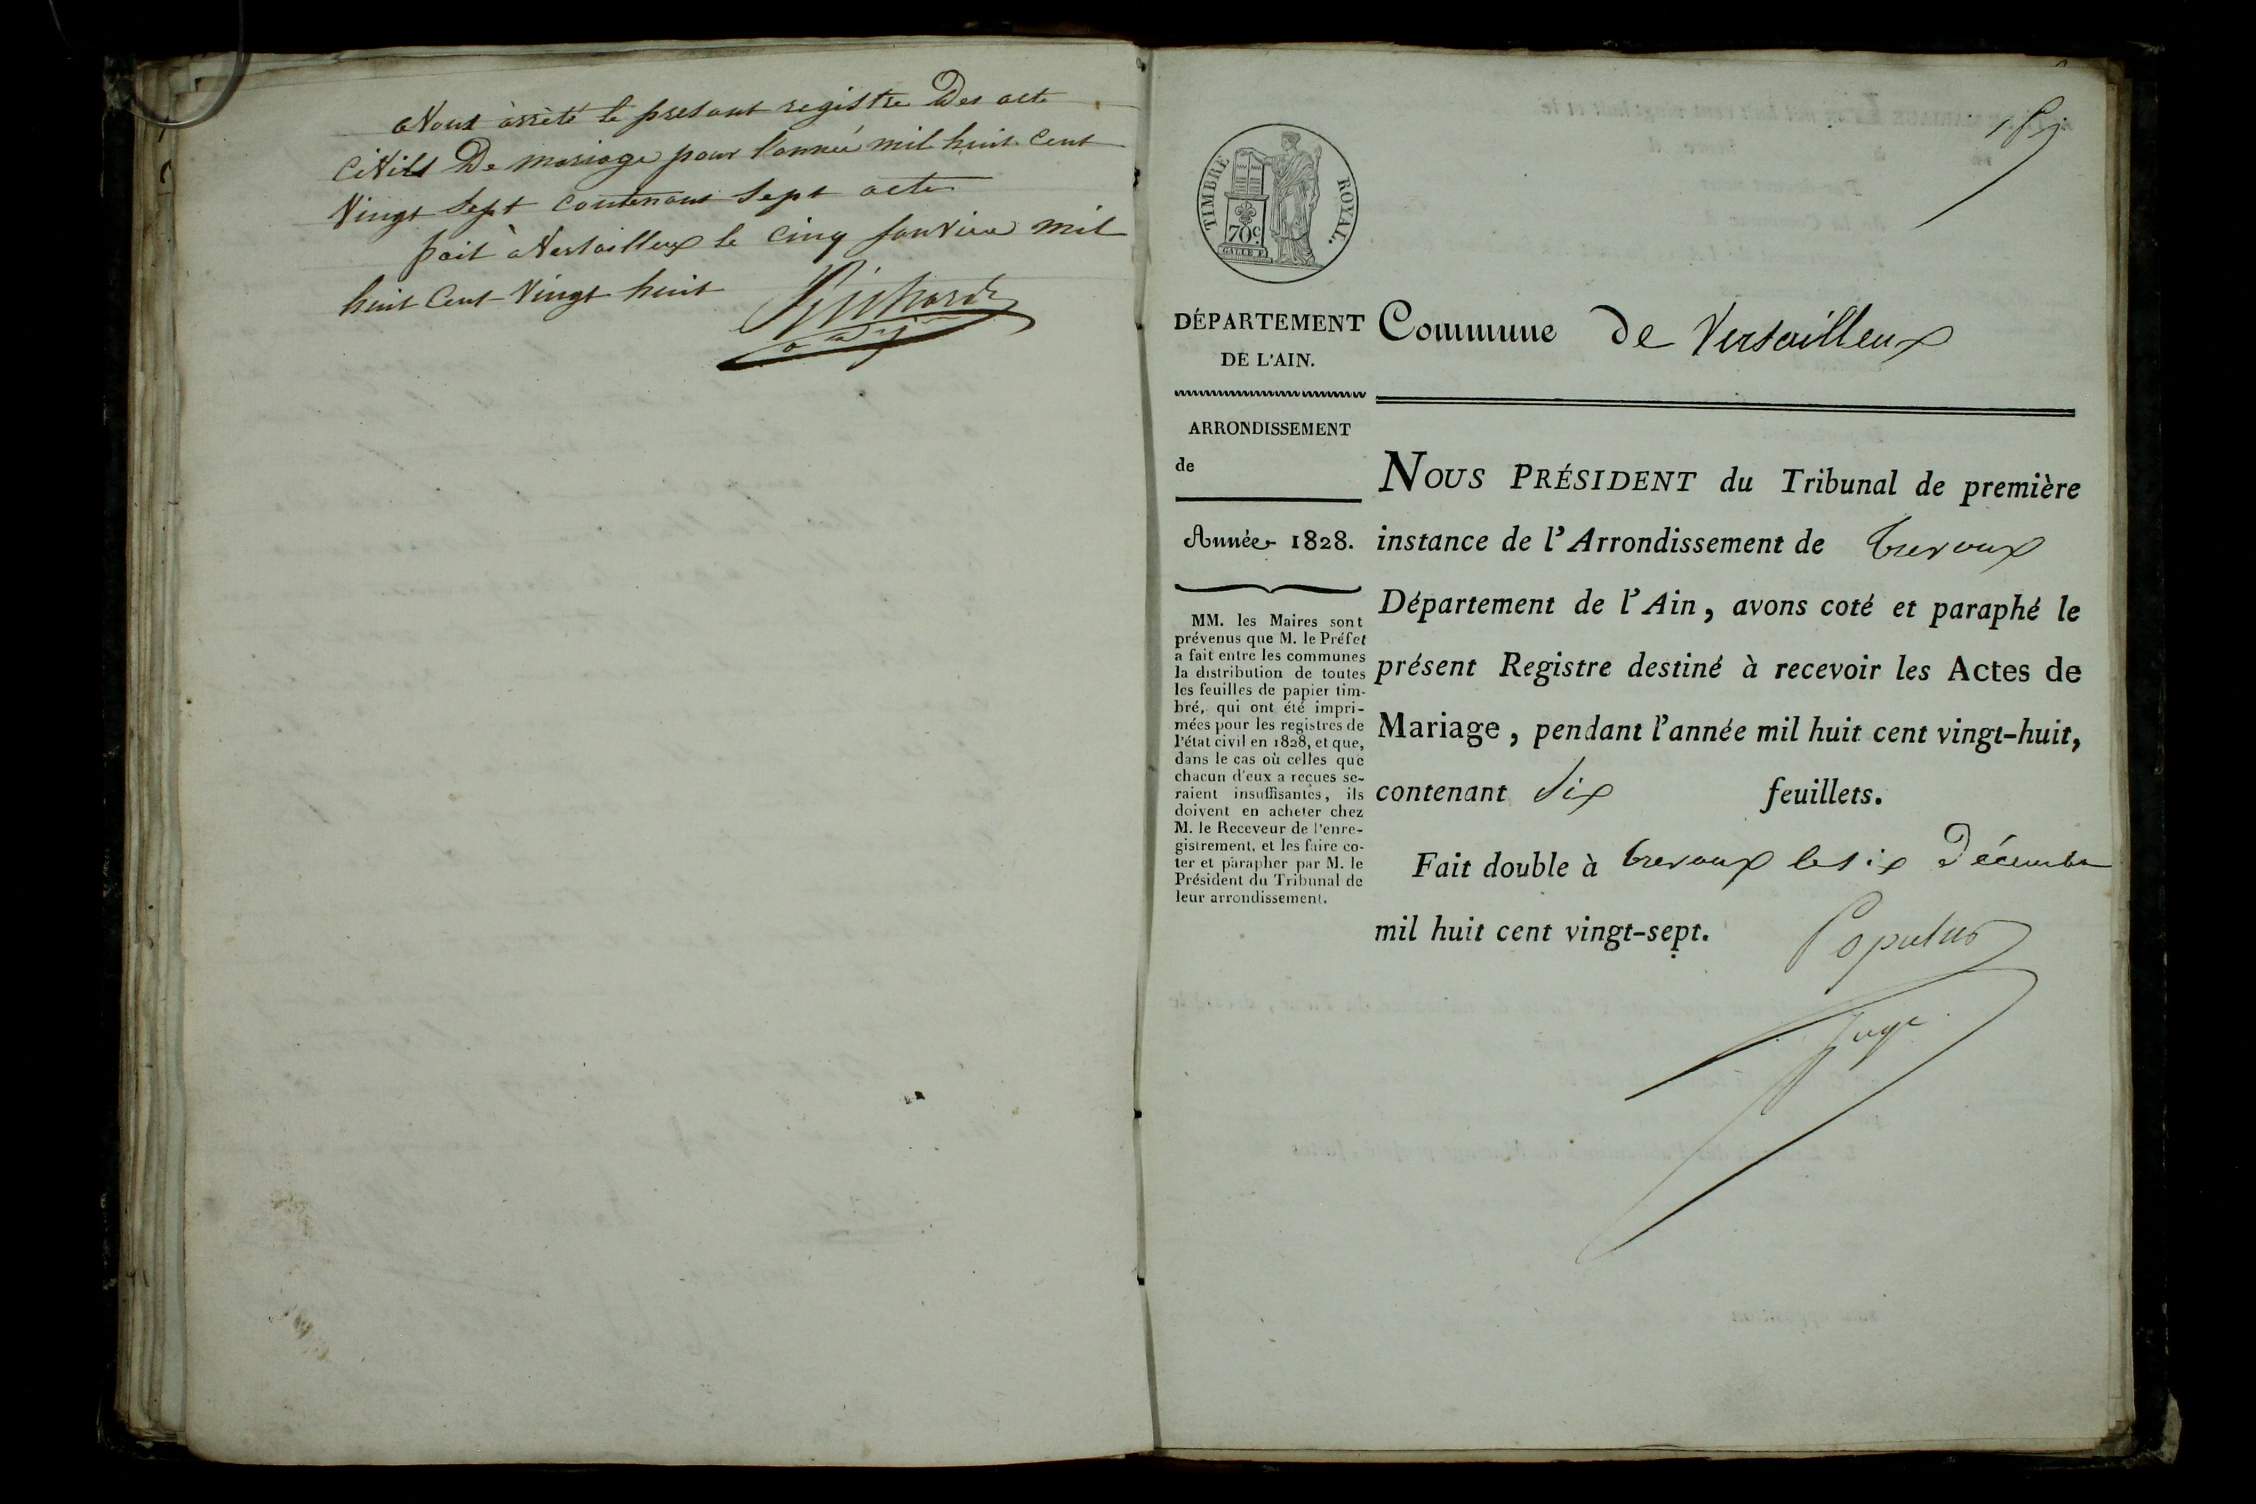 Nous arrèté le presant registre Des acte
civils De mariage pour l'année mil huit cent
vingt sept contenant sept acte
fait à Versailleux le cinq janvier mil
huit cent vingt huit
TIMBRE ROYAL.
70c.
GALLE F.
DÉPARTEMENT
DE L'AIN.
ARRONDISSEMENT
de
Année 1828.
MM. les Maires sont
prévenus que M. le Préfet
a fait entre les communes
la distribution de toutes
les feuilles de papier tim-
bré, qui ont été impri-
mées pour les registres de
l'état civil en 1828, et que,
dans le cas où celles que
chacun d'eux a reçues se-
raient insuffisantes, ils
doivent en acheter chez
M. le Receveur de l'enre-
gistrement, et les faire co-
ter et parapher par M. le
Président du Tribunal de
leur arrondissement.
Commune de Versailleux
NOUS PRÉSIDENT du Tribunal de première
instance de l'Arrondissement de trevoux
Département de l'Ain, avons coté et paraphé le
présent Registre destiné à recevoir les Actes de
Mariage, pendant l'année mil huit cent vingt-huit,
contenant six feuillets.
Fait double à trevoux le six Décembre
mil huit cent vingt-sept.
Populus
Juge